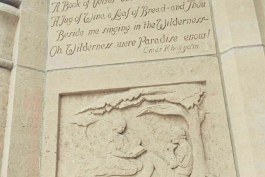 A Book of Verses
A Jug of Wine, a Loaf of Bread–and Thou
Beside me singing in the Wilderness–
Oh, Wilderness were Paradise enow!
Omar Khayyam